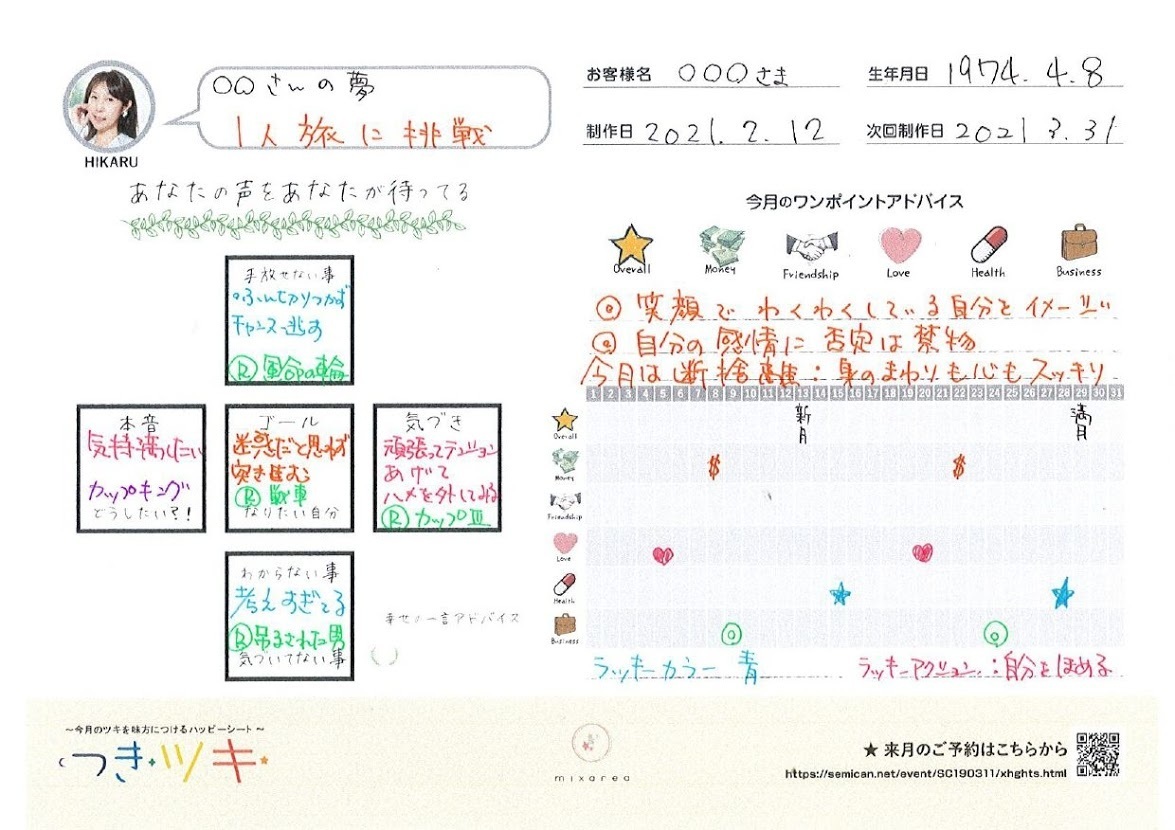 〇〇さんの夢
1人旅に挑戦
HIKARU
お客様名 〇〇〇さま
生年月日 1974.4.8
制作日 2021.2.12
次回制作日 2021 3.31
あなたの声をあなたが待ってる
今月のワンポイントアドバイス
Overall Money Friendship Love Health Business
◎ 笑顔でわくわくしている自分をイメージ
◎ 自分の感情に否定は禁物
今月は断捨離：身のまわりも心もスッキリ
手放せない事
ふんぎりつかず
チャンス逃す
Ⓡ 運命の輪
本音
気持満したい
カップキング
どうしたい？！
ゴール
迷惑だと思わず
突き進む
Ⓡ 戦車
なりたい自分
気づき
頑張ってテンション
あげて
ハメを外してみる
Ⓡ カップⅢ
わからない事
考えすぎてる
Ⓡ 吊るされた男
気づいてない事
幸せの一言アドバイス
1 2 3 4 5 6 7 8 9 10 11 12 13 14 15 16 17 18 19 20 21 22 23 24 25 26 27 28 29 30 31
新月
満月
Overall
Money
$ $
Friendship
Love
Health
Business
ラッキーカラー 青
ラッキーアクション：自分をほめる
～今月のツキを味方につけるハッピーシート～
つき・ツキ
mixarea
★ 来月のご予約はこちらから
https://semican.net/event/SC190311/xhghts.html